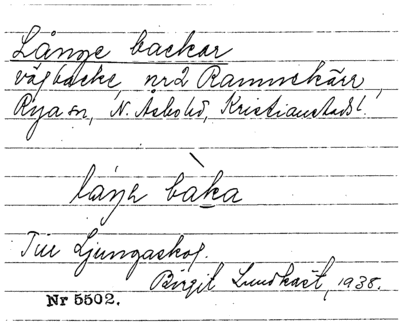 Långe backar
vägbacke, nr 2 Ramnekärr,
Rya sn, N. Åsbo hd, Kristianstads l.
Till Ljungaskog.
Birgit Lundkvist, 1938.
Nr 5502.